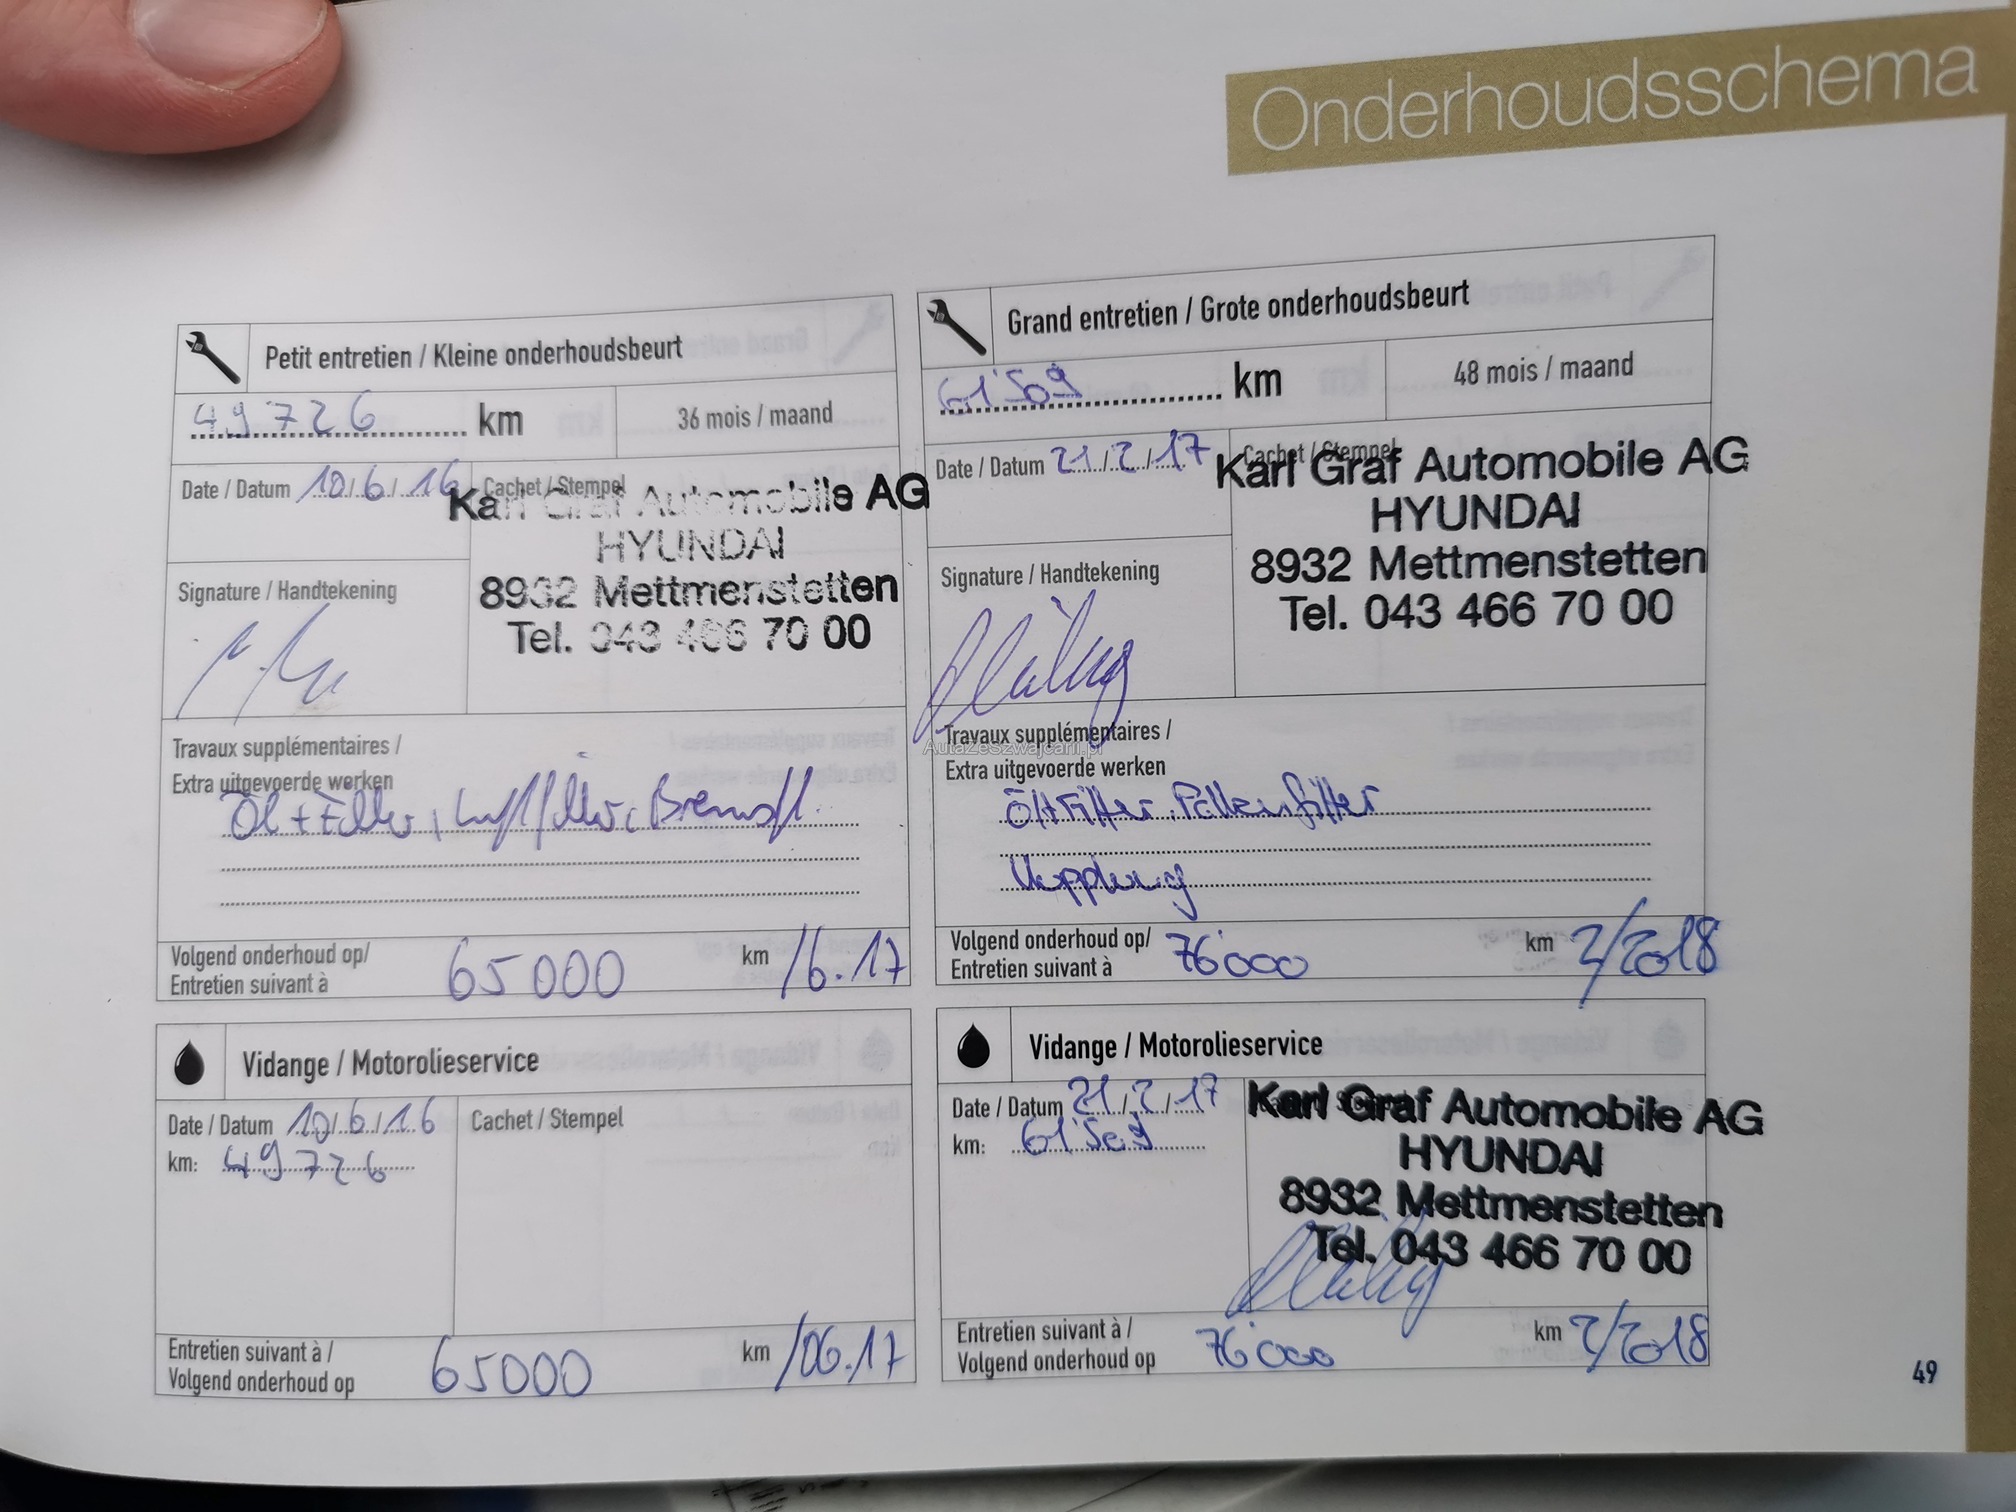 Onderhoudsschema
Petit entretien / Kleine onderhoudsbeurt
49726 km
36 mois / maand
Date / Datum 10/6/16
Cachet / Stempel
Karl Graf Automobile AG
HYUNDAI
8932 Mettmenstetten
Tel. 043 466 70 00
Signature / Handtekening
Travaux supplémentaires /
Extra uitgevoerde werken
Öl + Filter, Luftfilter, Bremsfl.
Volgend onderhoud op/
Entretien suivant à
65000 km /6.17
Grand entretien / Grote onderhoudsbeurt
61'509 km
48 mois / maand
Date / Datum 21/2/17
Cachet / Stempel
Karl Graf Automobile AG
HYUNDAI
8932 Mettmenstetten
Tel. 043 466 70 00
Signature / Handtekening
Travaux supplémentaires /
AutaZeSzwajcarii.pl
Extra uitgevoerde werken
Öl+Filter, Pollenfilter
Kupplung
Volgend onderhoud op/
Entretien suivant à
76'000 km 2/2018
Vidange / Motorolieservice
Date / Datum 10/6/16
km: 49726
Cachet / Stempel
Entretien suivant à /
Volgend onderhoud op
65000 km /06.17
Vidange / Motorolieservice
Date / Datum 21/2/17
km: 61'509
Karl Graf Automobile AG
HYUNDAI
8932 Mettmenstetten
Tel. 043 466 70 00
Entretien suivant à /
Volgend onderhoud op
76'000 km 2/2018
49